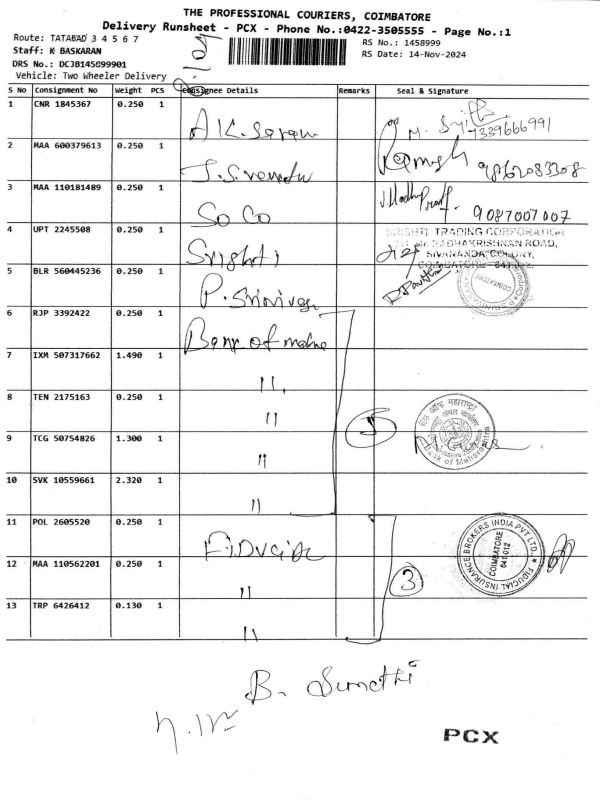 THE PROFESSIONAL COURIERS, COIMBATORE
Delivery Runsheet - PCX - Phone No.:0422-3505555 - Page No.:1
Route: TATABAD 3 4 5 6 7
Staff: K BASKARAN
DRS No.: DCJB145899901
Vehicle: Two Wheeler Delivery
RS No.: 1458999
RS Date: 14-Nov-2024
S No Consignment No Weight PCS Consignee Details Remarks Seal & Signature
1 CNR 1845367 0.250 1 A K. Saran 7339666991
2 MAA 600379613 0.250 1 Ramesh 9862083308
3 MAA 110181489 0.250 1 So Co 9087007007
4 UPT 2245508 0.250 1 Srishti
SRISHTI TRADING CORPORATION
RADHAKRISHNAN ROAD,
SIVANANDA COLONY,
COIMBATORE - 641 012.
5 BLR 560445236 0.250 1 P. Srinivas
6 RJP 3392422 0.250 1 Bank of maha
7 IXM 507317662 1.490 1 "
8 TEN 2175163 0.250 1 "
9 TCG 50754826 1.300 1 "
10 SVK 10559661 2.320 1 "
5
बैंक ऑफ महाराष्ट्र
Bank of Maharashtra
11 POL 2605520 0.250 1 Fiducia
12 MAA 110562201 0.250 1 "
13 TRP 6426412 0.130 1 "
3
FIDUCIAL INSURANCE BROKERS INDIA PVT LTD.,
COIMBATORE
641 012
B. Sumathi
PCX